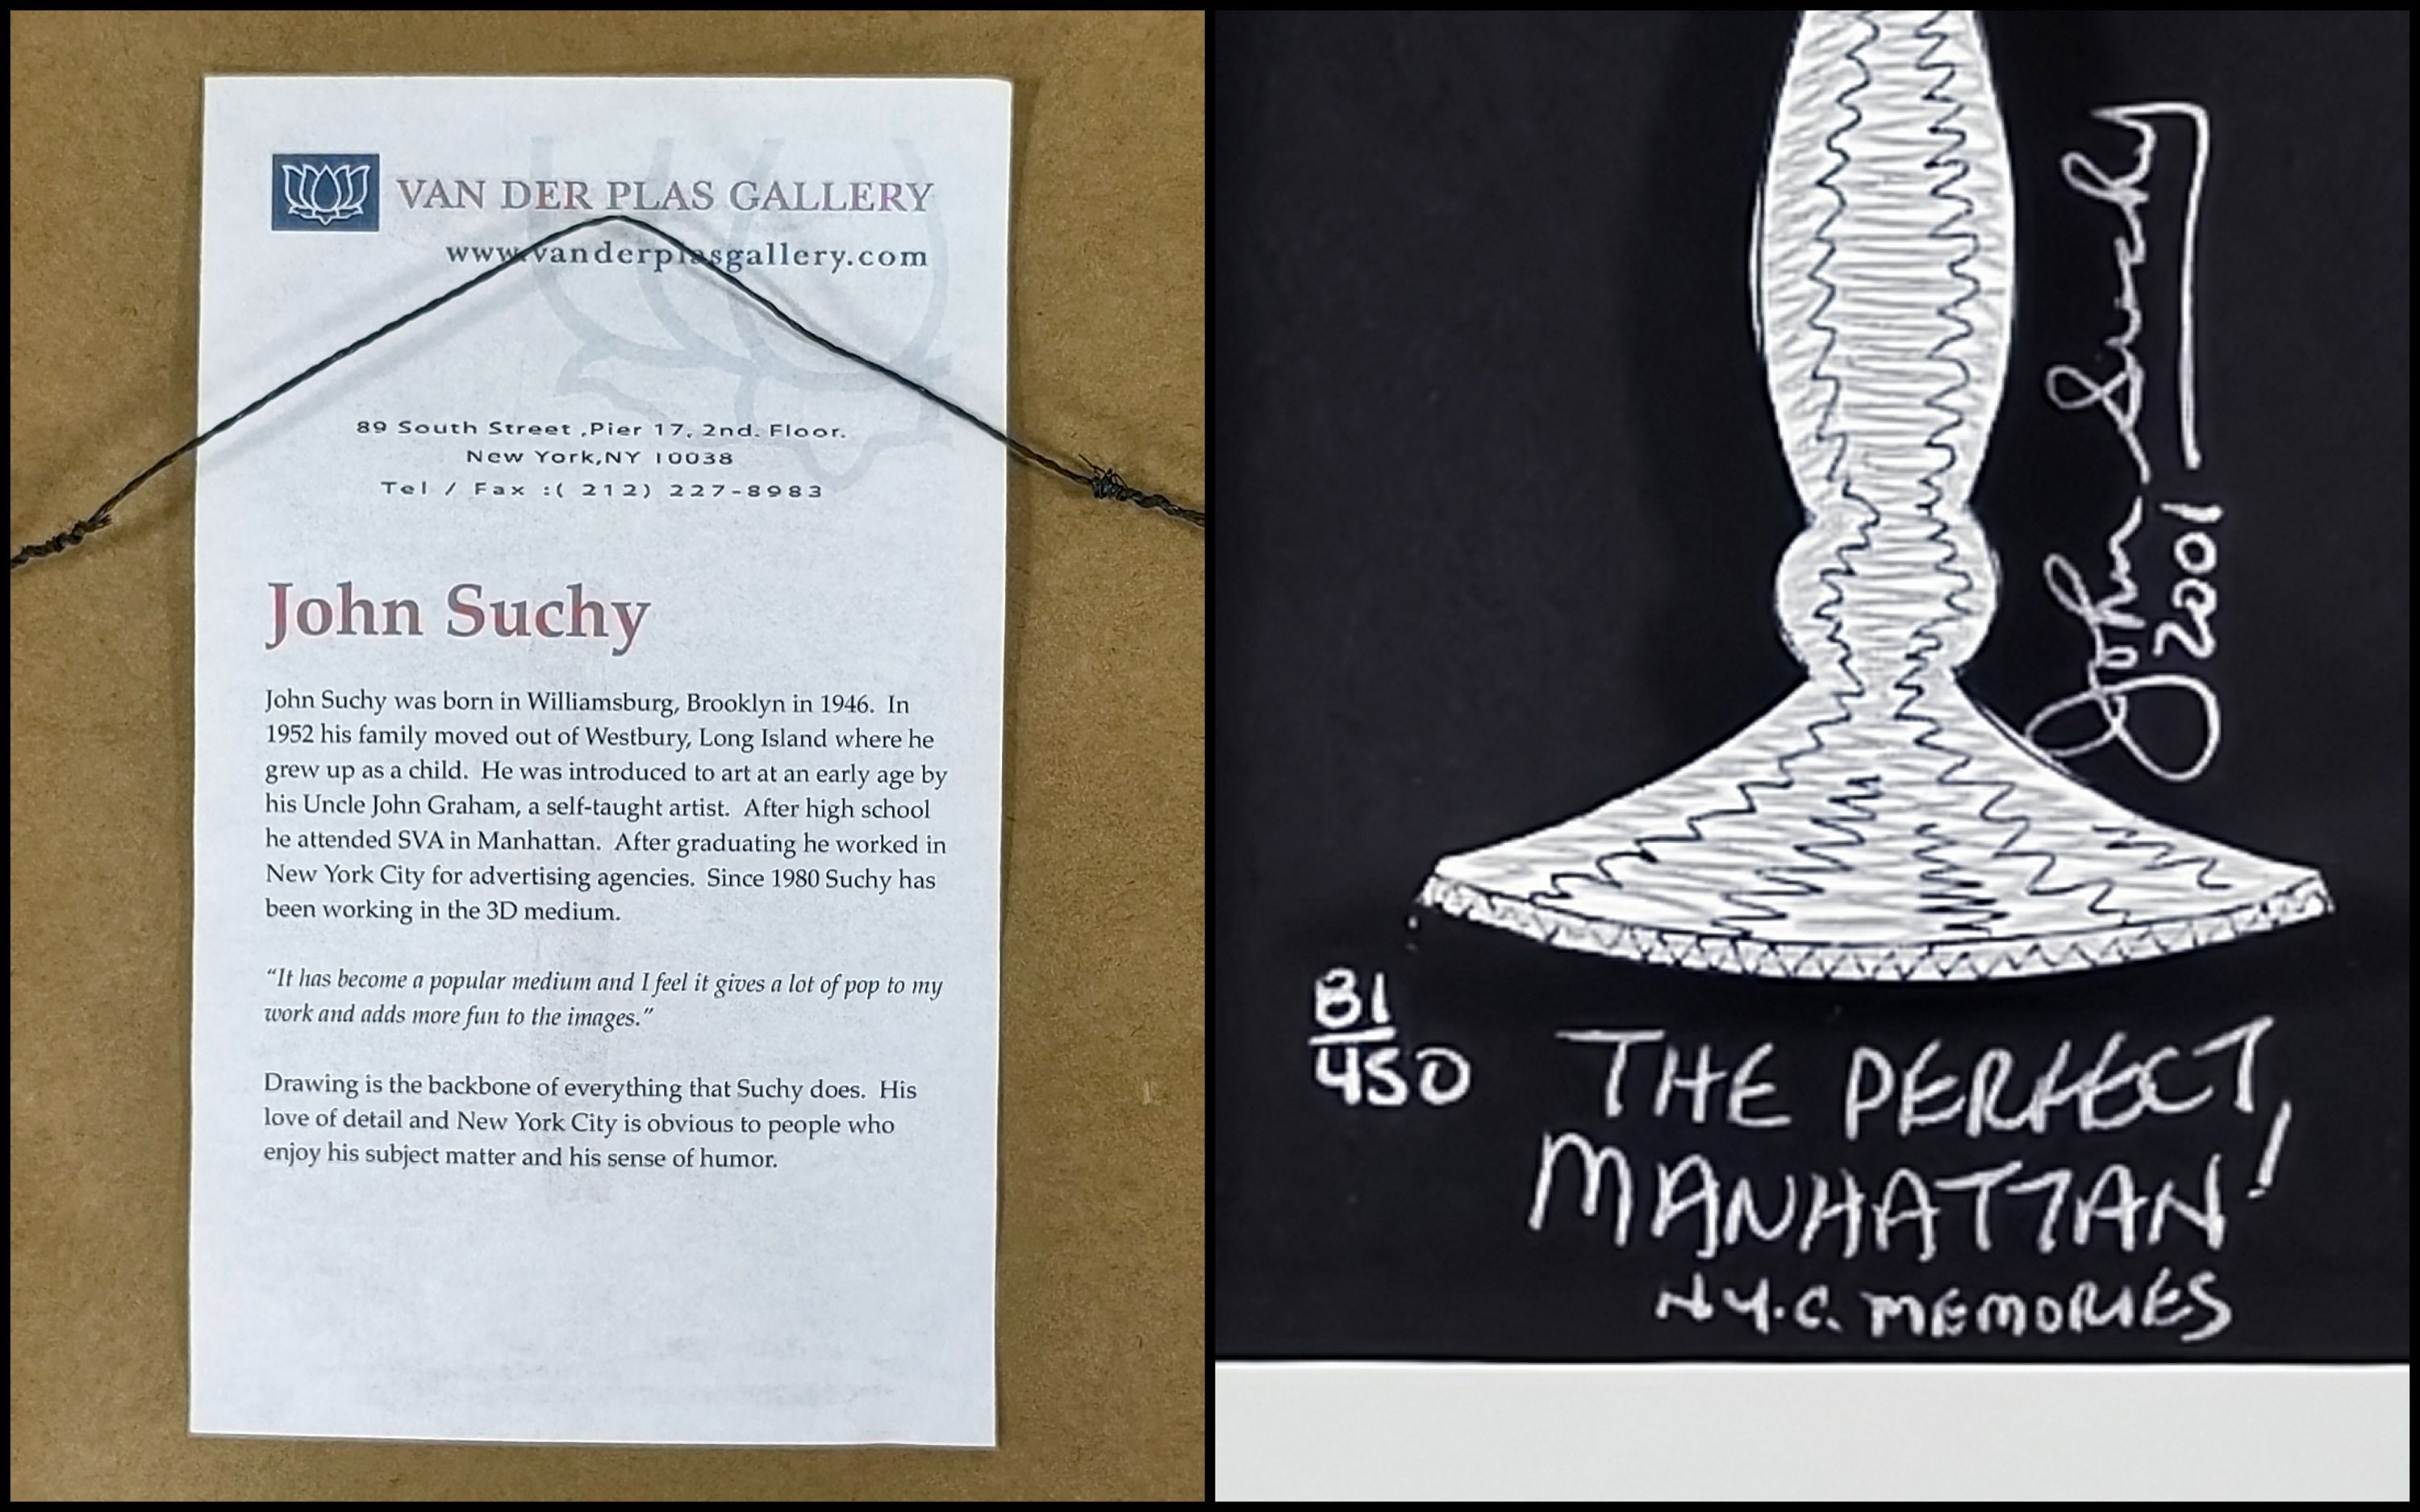 VAN DER PLAS GALLERY
www.vanderplasgallery.com
89 South Street ,Pier 17, 2nd. Floor.
New York,NY 10038
Tel / Fax :( 212) 227-8983
John Suchy
John Suchy was born in Williamsburg, Brooklyn in 1946. In
1952 his family moved out of Westbury, Long Island where he
grew up as a child. He was introduced to art at an early age by
his Uncle John Graham, a self-taught artist. After high school
he attended SVA in Manhattan. After graduating he worked in
New York City for advertising agencies. Since 1980 Suchy has
been working in the 3D medium.
“It has become a popular medium and I feel it gives a lot of pop to my
work and adds more fun to the images.”
Drawing is the backbone of everything that Suchy does. His
love of detail and New York City is obvious to people who
enjoy his subject matter and his sense of humor.
John Suchy
2001
81
450
THE PERFECT,
MANHATTAN!
N.Y.C. MEMORIES